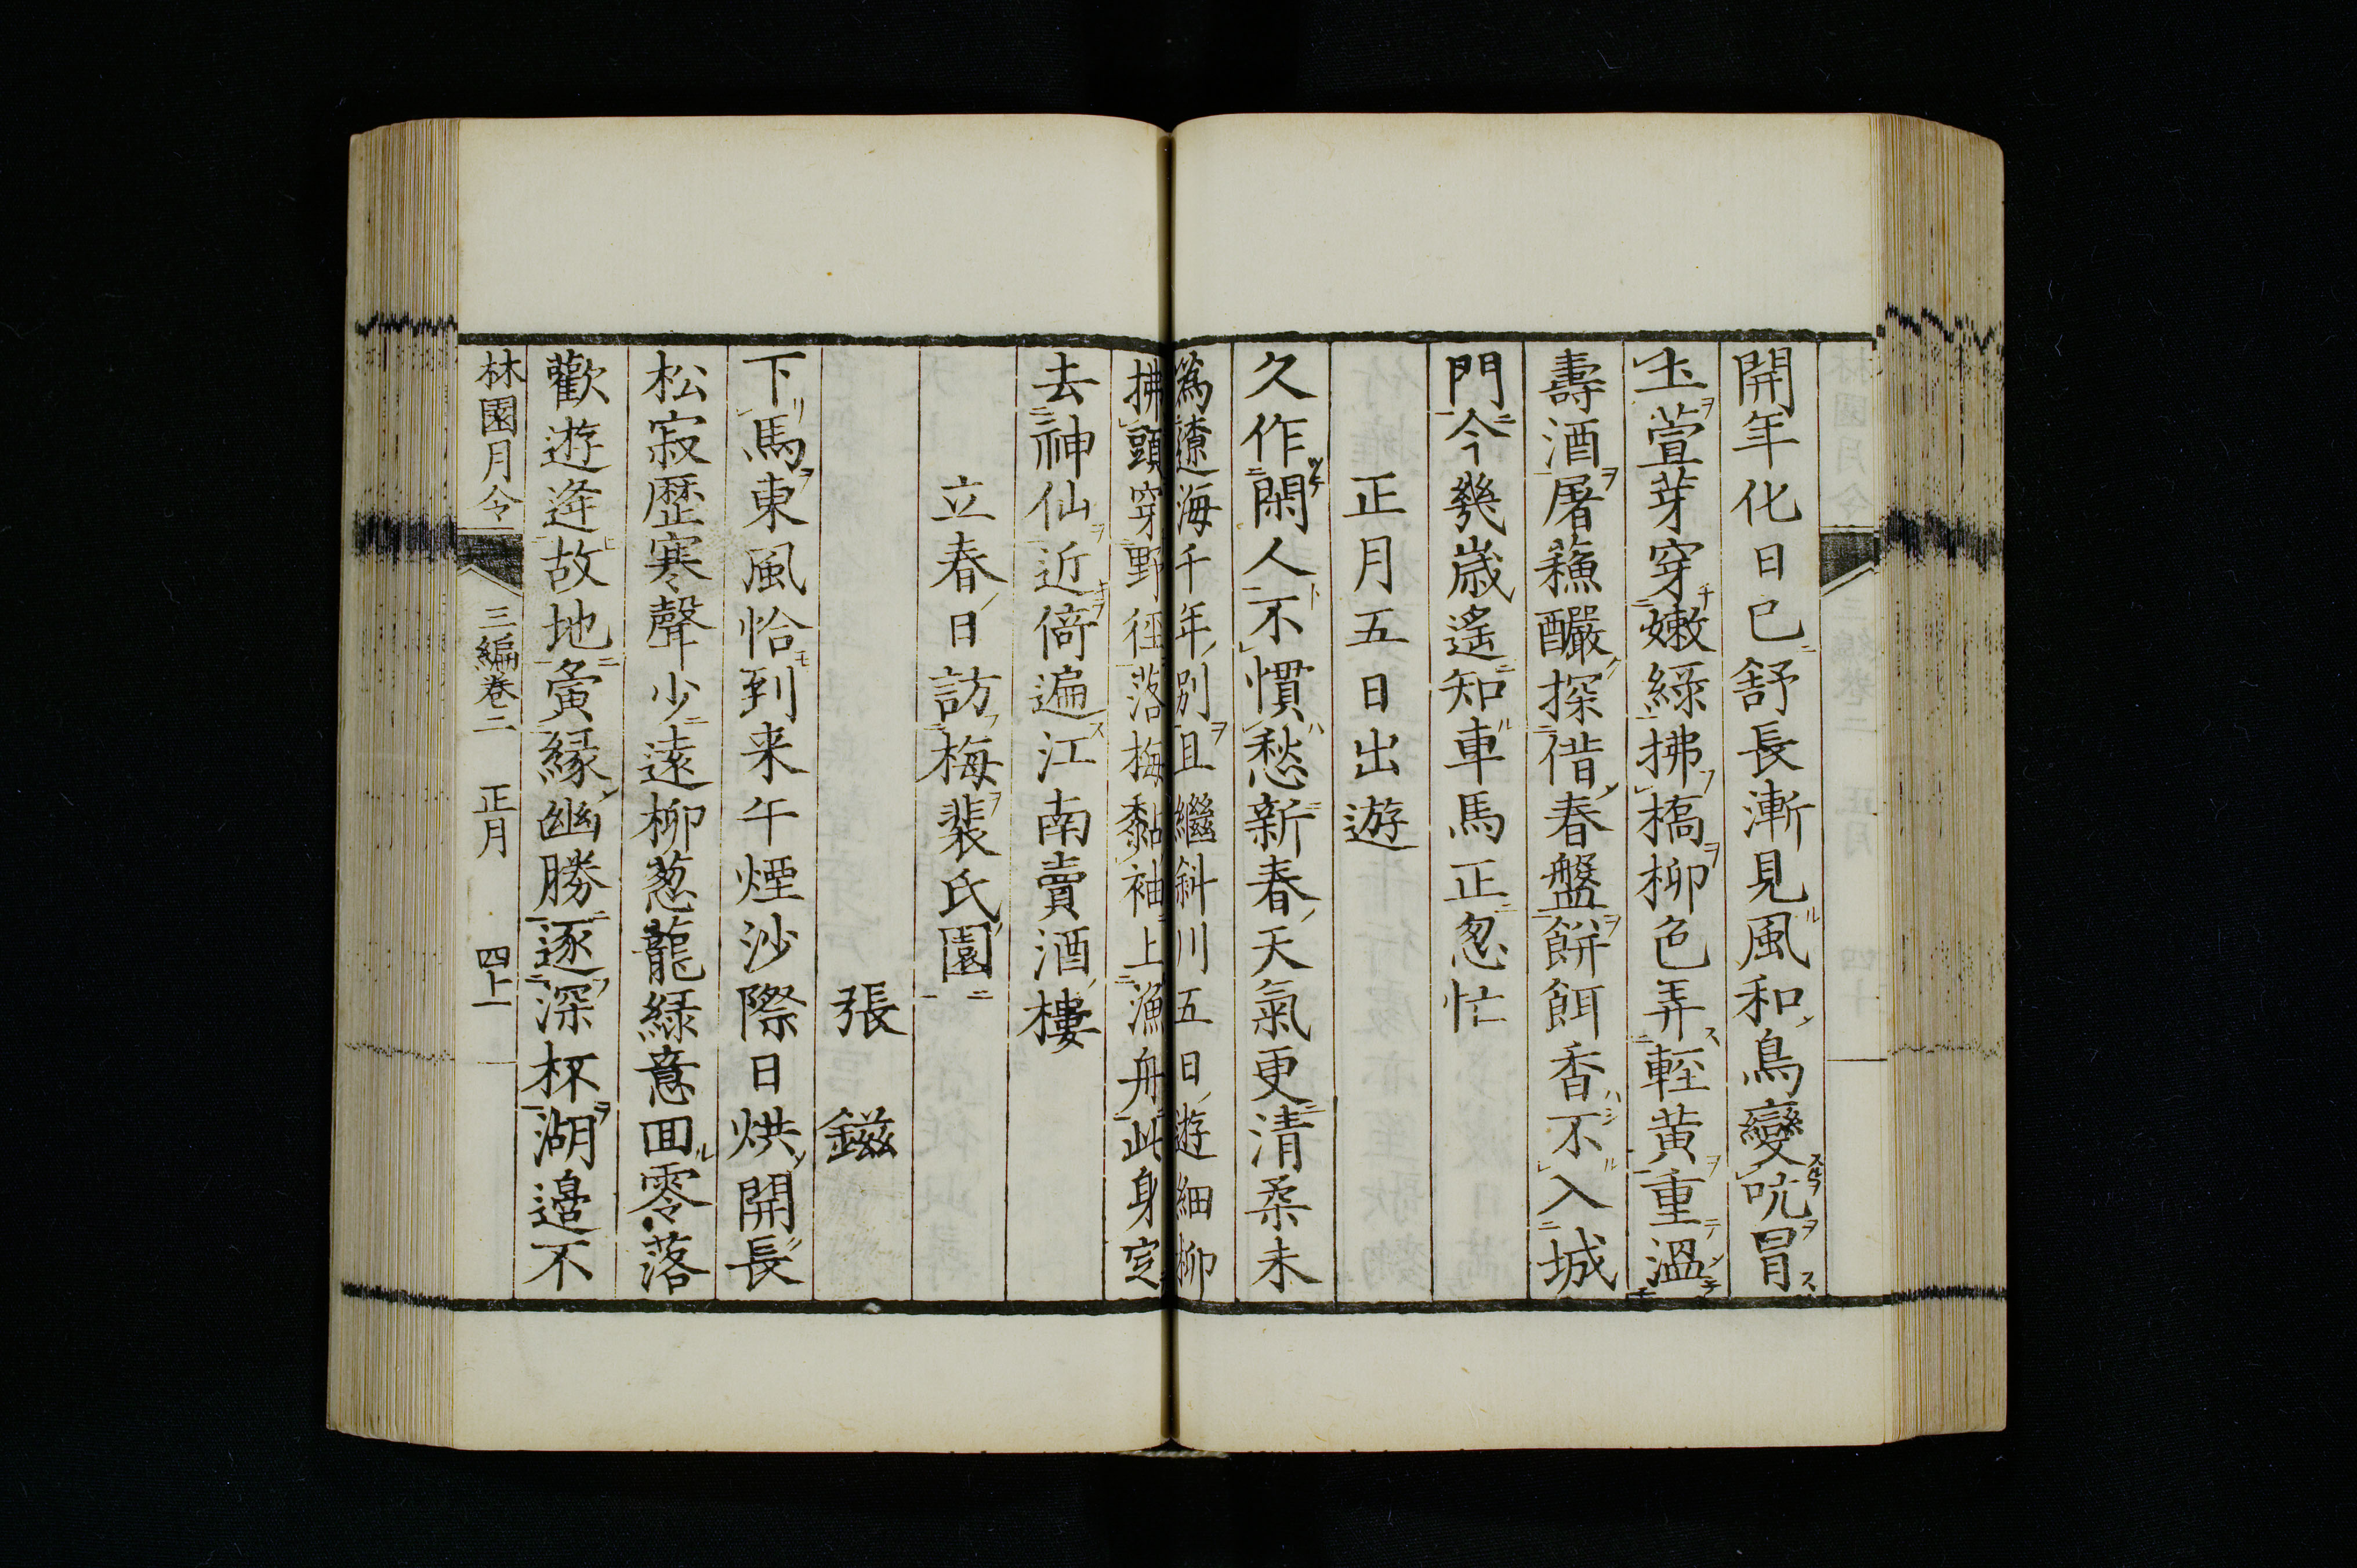 開年化日已舒長漸見風和鳥變吭冒
土萱芽穿嫩綠拂橋柳色弄輕黃重溫
壽酒屠蘓釅探借春盤餅餌香不入城
門今幾歲遙知車馬正怱忙
正月五日出遊
久作閑人不慣愁新春天氣更清柔未
爲遼海千年別且繼斜川五日遊細柳
拂頭穿野徑落梅黏袖上漁舟此身定
去神仙近倚遍江南賣酒樓
立春日訪梅裴氏園
張鎡
下馬東風恰到来午煙沙際日烘開長
松寂歴寒聲少遠柳葱蘢緑意囬零落
歡遊逄故地夤緣幽勝逐深杯湖邉不
林園月令 三編卷二 正月 四上